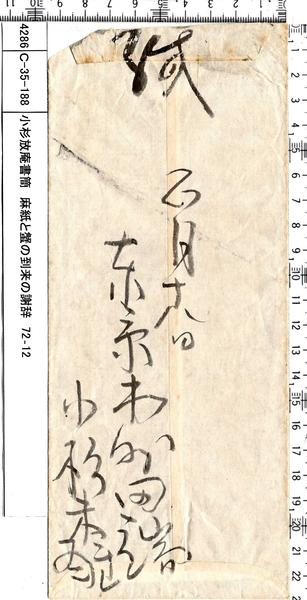 緘
月 日
東京市外田端
小杉未醒
4286 C-35-188 小杉放庵書簡 麻紙と蟹の到来の謝辞 72-12